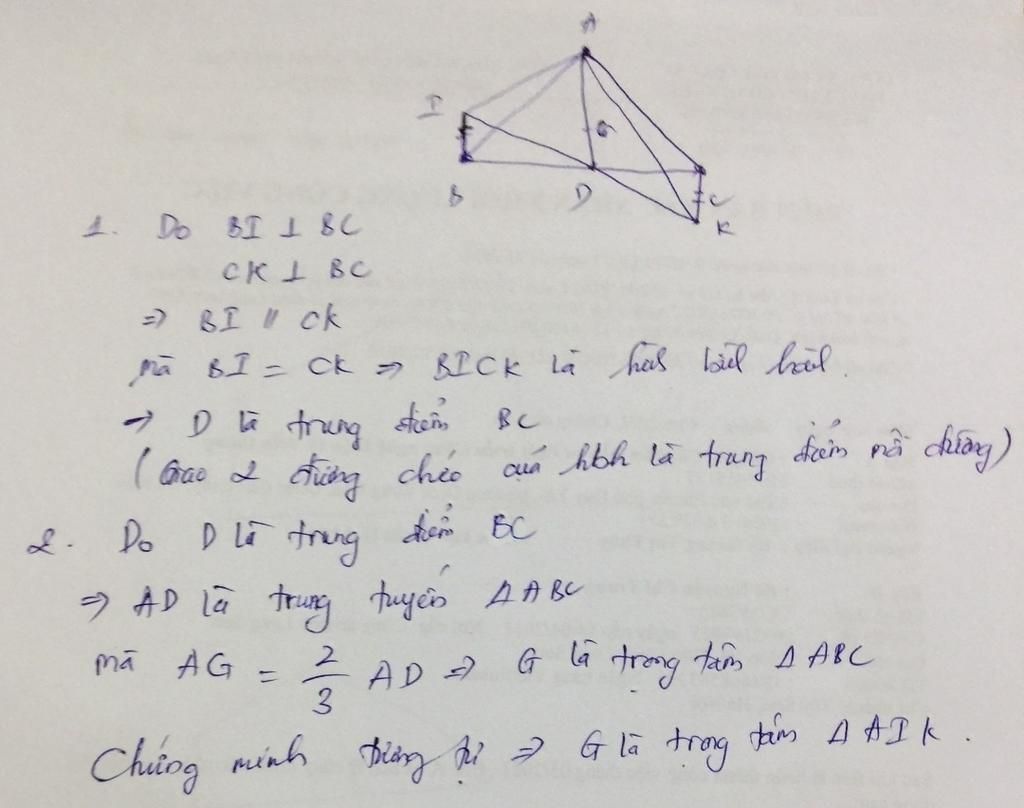 A
I
G
B D C
K
1. Do BI ⊥ BC
CK ⊥ BC
=> BI // CK
mà BI = CK => BICK là hình bình hành.
→ D là trung điểm BC
(Giao 2 đường chéo của hbh là trung điểm mỗi đường)
2. Do D là trung điểm BC
=> AD là trung tuyến Δ ABC
mà AG = 2/3 AD => G là trọng tâm Δ ABC
Chứng minh tương tự => G là trọng tâm Δ AIK.